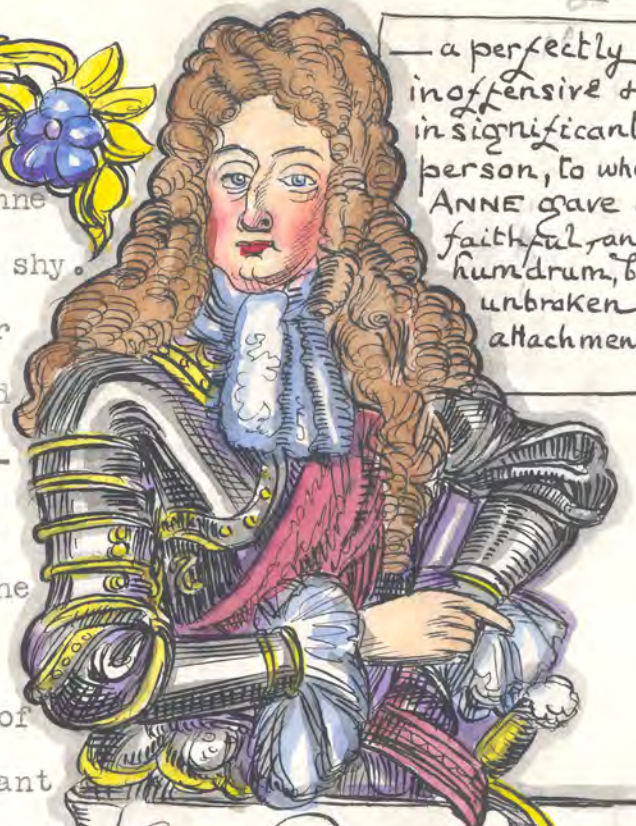 — a perfectly
inoffensive &
insignificant
person, to
ANNE gave
faithful, an
humdrum, b
unbroken
attachmen
nne
shy.
r
d
-
ne
of
ant